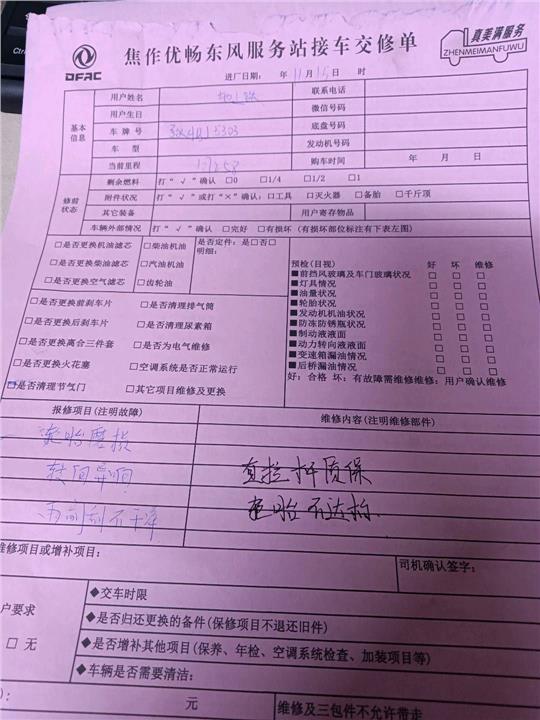 Ctrl
DFAC
焦作优畅东风服务站接车交修单
真美满服务
ZHENMEIMANFUWU
进厂日期: 年 11 月 15 日 时
基本信息
用户姓名
联系电话
用户生日
微信号码
车牌号
底盘号码
车型
发动机号码
当前里程
购车时间 年 月 日
修前状态
剩余燃料 打“√”确认 □0 □1/4 □1/2 □1
附件状况 打“√”或打“×”确认:□工具 □灭火器 □备胎 □千斤顶
其它装备
用户寄存物品
车辆外部情况 打“√”确认 □完好 □有损坏 (有损坏部位标注有下表左图)
□是否更换机油滤芯 □柴油机油
是否定件: 是□否□
明细:
□是否更换柴油滤芯 □汽油机油
□是否更换空气滤芯 □齿轮油
□是否更换前刹车片 □是否清理排气筒
□是否更换后刹车片 □是否清理尿素箱
□是否更换离合三件套 □是否为电气维修
□是否更换火花塞 □空调系统是否正常运行
□是否清理节气门 □其它项目维修及更换
预检(目视) 好 坏 维修
■前挡风玻璃及车门玻璃状况 □ □ □
■灯具情况 □ □ □
■油量状况 □ □ □
■轮胎状况 □ □ □
■发动机机油状况 □ □ □
■防冻防锈瓶状况 □ □ □
■制动液液面 □ □ □
■动力转向液液面 □ □ □
■变速箱漏油情况 □ □ □
■后桥漏油情况 □ □ □
好: 合格 坏: 有故障需维修维修: 用户确认维修
报修项目(注明故障)
维修内容(注明维修部件)
转向异响
直拉杆质保
雨刮刮不干净
维修项目或增补项目:
司机确认签字:
户要求
□ 无
◆交车时限
◆是否归还更换的备件(保修项目不退还旧件)
◆是否增补其他项目(保养、年检、空调系统检查、加装项目等)
◆车辆是否需要清洁:
): 元
维修及三包件不允许带走